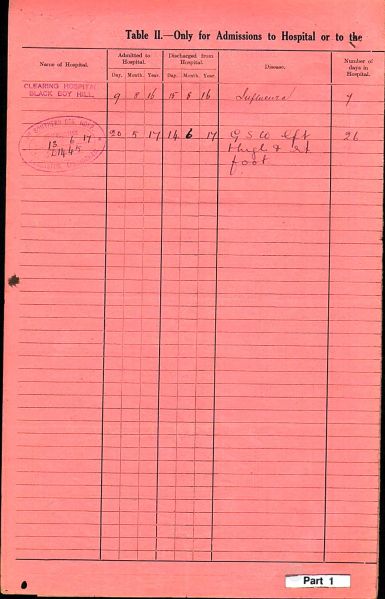 Table II.—Only for Admissions to Hospital or to the
Name of Hospital. Admitted to Hospital. Discharged from Hospital. Disease. Number of days in Hospital.
Day. Month. Year. Day. Month. Year.
CLEARING HOSPITAL
BLACK BOY HILL. 9 8 16 15 8 16 Influenza 7
20 5 17 14 6 17 G S W left 26
thigh & rt
foot
13 6 17
Part 1